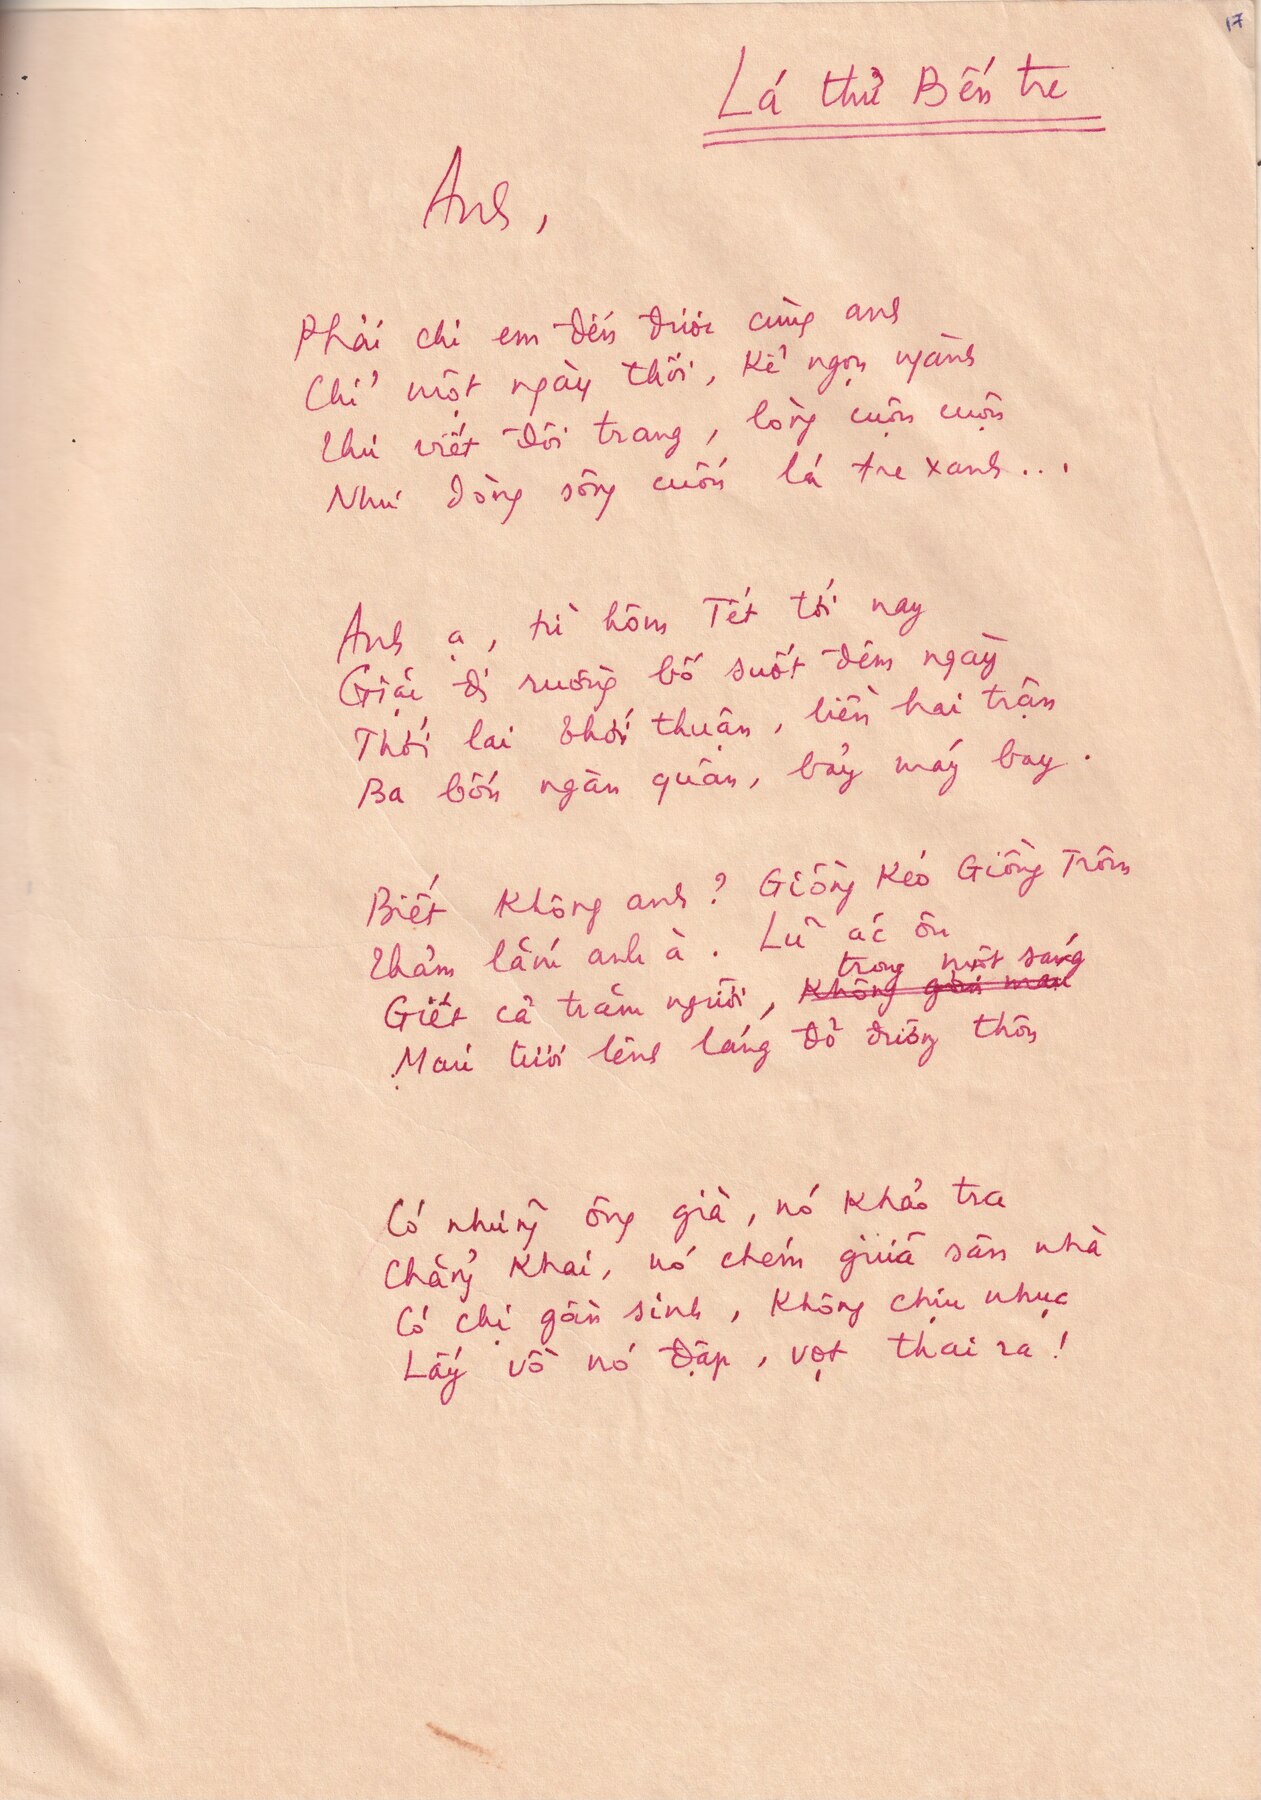 17
Lá thư Bến tre
Anh,
Phải chi em đến được cùng anh
Chỉ một ngày thôi, kể ngọn ngành
Thư viết đôi trang, lòng cuộn cuộn
Như dòng sông cuốn lá tre xanh...
Anh ạ, từ hôm Tết tới nay
Giặc đi ruồng bố suốt đêm ngày
Thới lai Thới thuận, liền hai trận
Ba bốn ngàn quân, bảy máy bay.
Biết không anh? Giồng Keó Giồng Trôm
Thảm lắm anh à. Lũ ác ôn
trong một sáng
Giết cả trăm người, Không
Máu tươi lênh láng đỏ đường thôn
Có những ông già, nó khảo tra
Chẳng khai, nó chém giữa sân nhà
Có chị gần sinh, không chịu nhục
Lấy vồ nó đập, vọt thai ra!